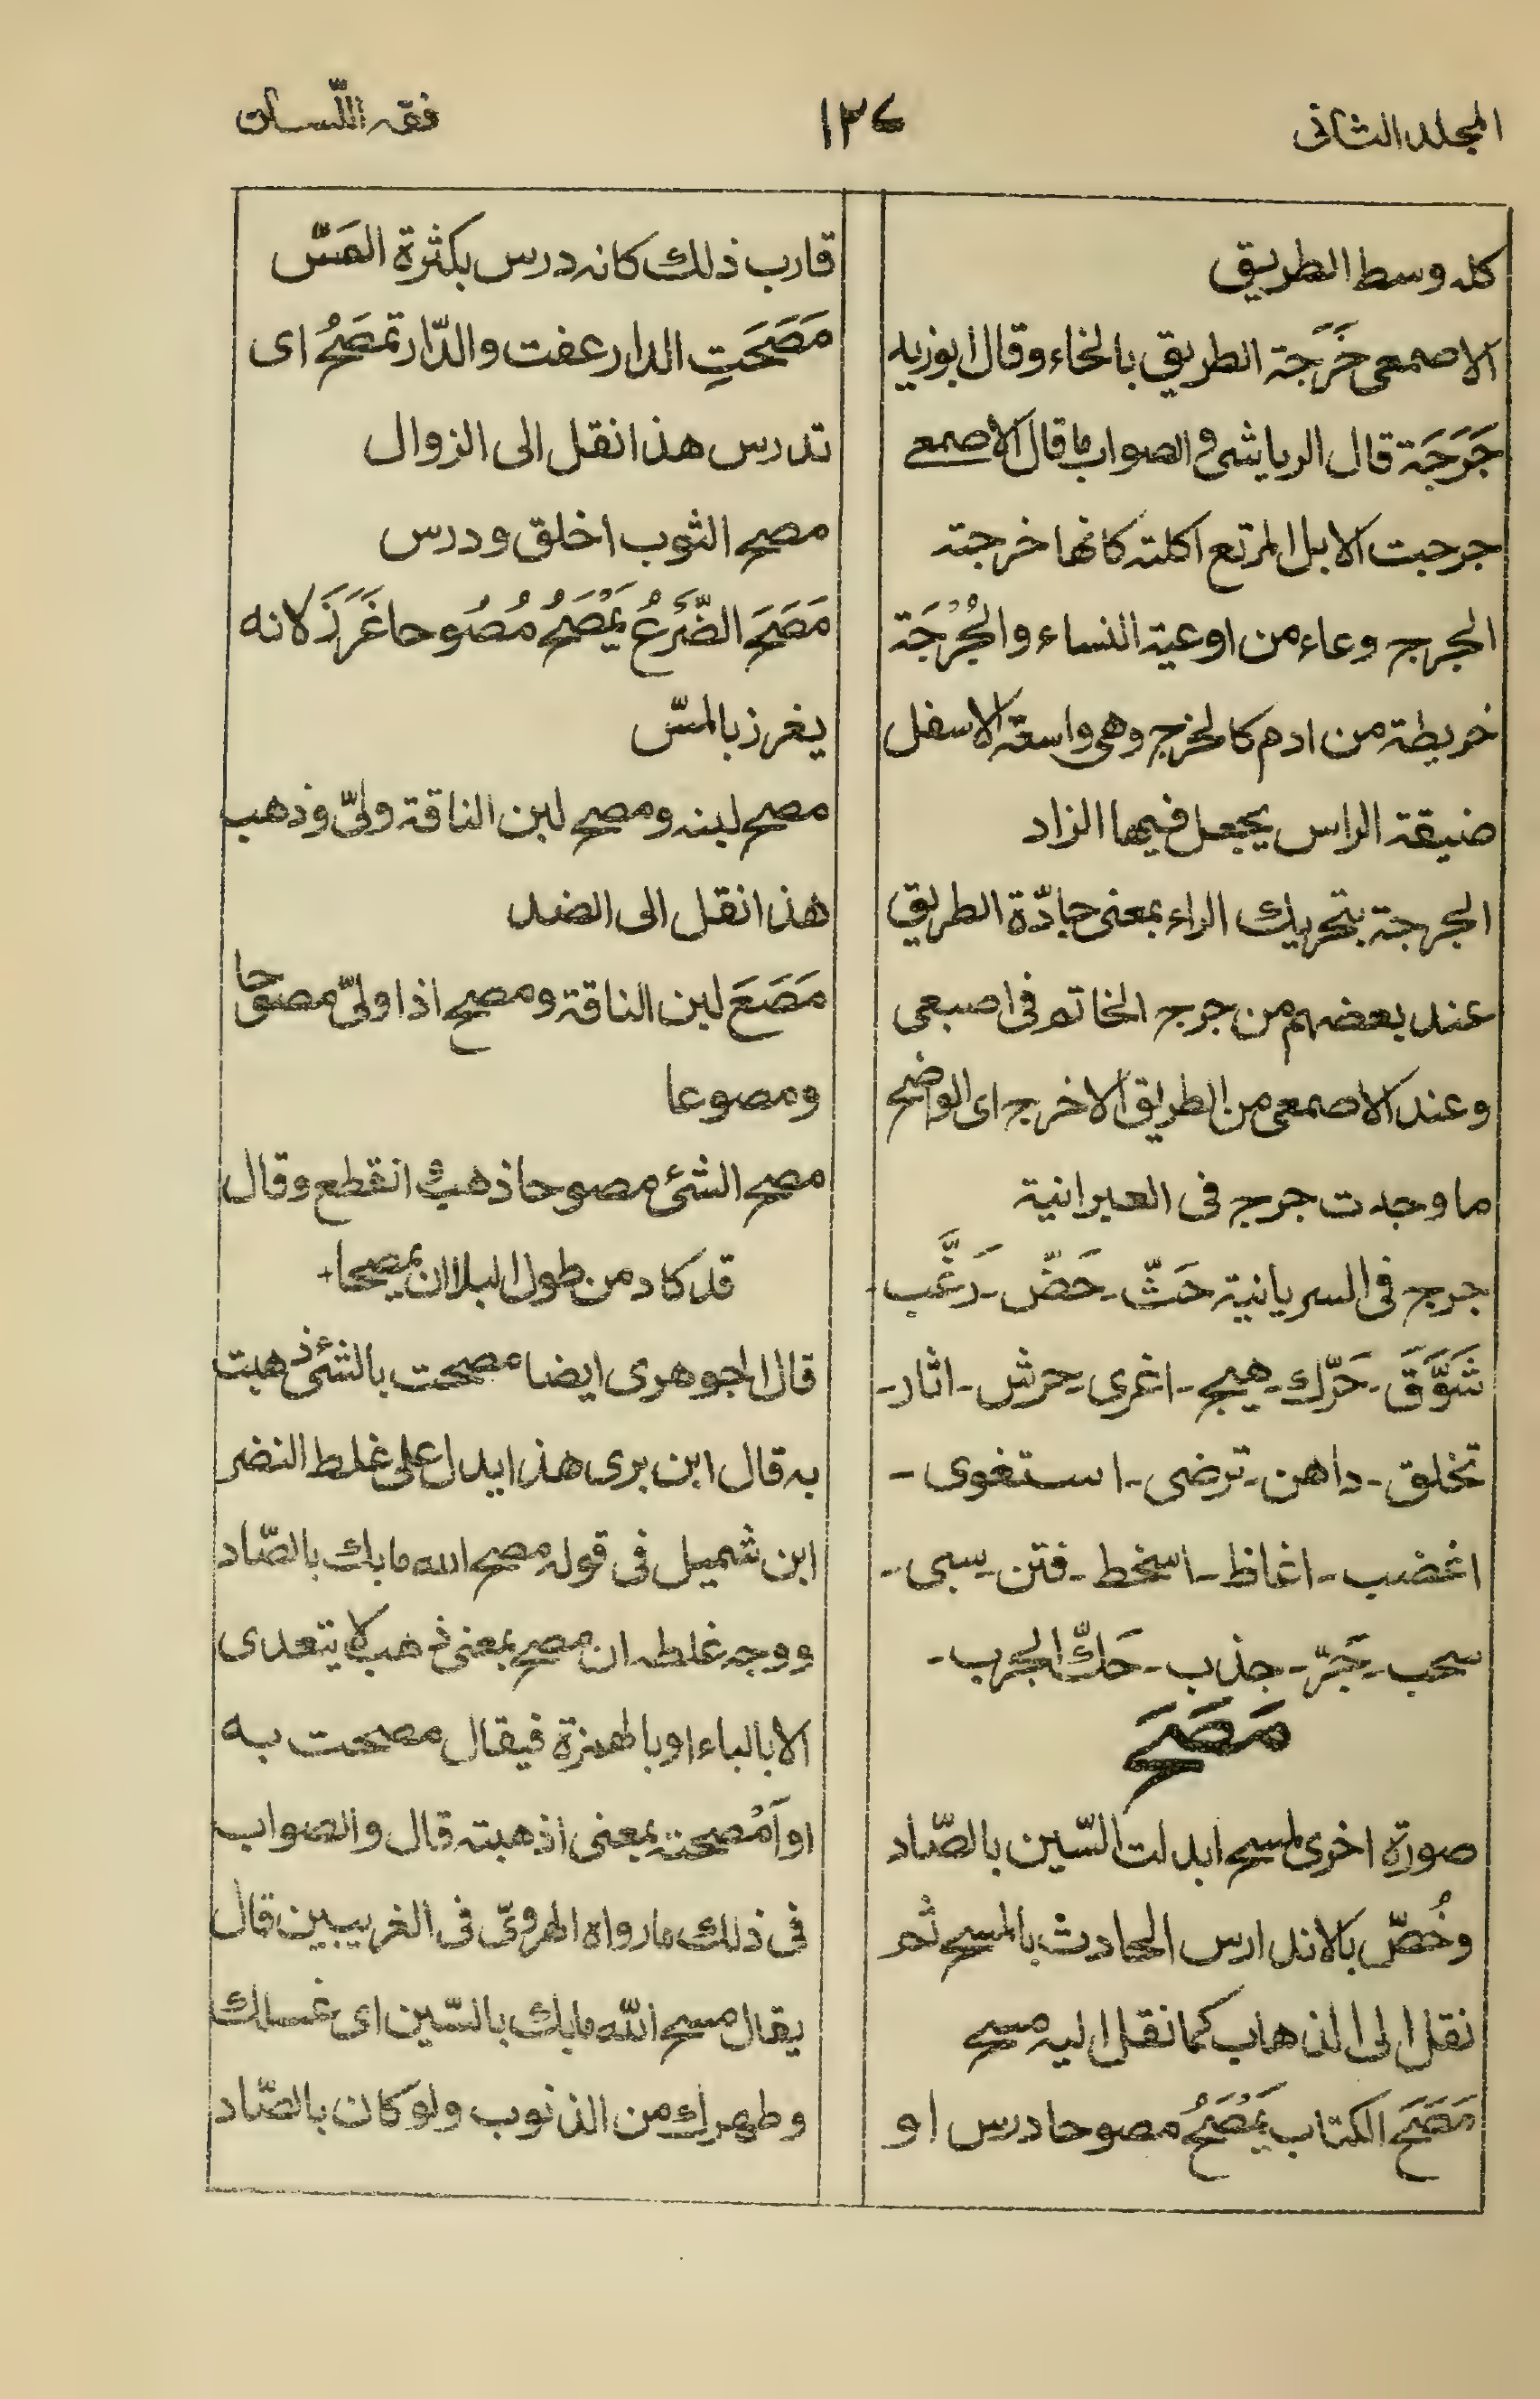 المجلد الثانى
١٣٧
فقه اللّسان
كله وسط الطريق
الاصمعى خَرَجَة الطريق بالخاء وقال ابوزيد
جَرَجَة قال الرياشى والصواب ما قال الاصمعى
جرجت الابل المرتع اكلته كانها خرجته
الجرج وعاء من اوعية النساء والجُرْجَة
خريطة من ادم كالخرج وهى واسعة الاسفل
ضيقة الراس يجعل فيها الزاد
الجرجة بتحريك الراء بمعنى جادّة الطريق
عند بعضهم من جرج الخاتم فى اصبعى
وعند الاصمعى من الطريق الاخرج اى الواضح
ما وجدت جرج فى العبرانية
جرج فى السريانية حَثّ - حَضّ - رَغَّب -
شَوَّقَ - حَرّك - هيج - اغرى - حرش - اثار -
تخلق - داهن - ترضى - استغوى -
اغضب - اغاظ - اسخط - فتن - سبى -
سحب - جَرّ - جذب - حَكّ الجرب -
مَصَحَ
صورة اخرى لمسح ابدلت السّين بالصّاد
وخُصّ بالاندارس الحادث بالمسح ثم
نقل الى الذهاب كما نقل اليه مسح
مَصَحَ الكتاب يَمْصَحُ مصوحا درس او
قارب ذلك كانه درس بكثرة المَسّ
مَصَحَتِ الدار عفت والدّار تمصَحُ اى
تدرس هذا نقل الى الزوال
مصح الثوب اخلق ودرس
مَصَحَ الضَّرعُ يَمْصَحُ مُصُوحا غَرَزَ لانه
يغرز بالمسّ
مصح لبنه ومصح لبن الناقة ولىّ وذهب
هذا نقل الى الضد
مَصَعَ لبن الناقة ومصح اذا ولىّ مصوحا
ومصوعا
مصح الشئ مصوحا ذهب وانقطع وقال
قد كاد من طول البلا ان يمصحا+
قال الجوهرى ايضا مصحت بالشئ ذهبت
به قال ابن برى هذا يدل على غلط النضر
ابن شميل فى قوله مصح الله ما بك بالصّاد
ووجه غلطه ان مصح بمعنى ذهب لا يتعدى
الا بالباء او بالهمزة فيقال مصحت به
او اَمْصحته بمعنى اذهبته قال والصواب
فى ذلك ما رواه الهروىّ فى الغريبين قال
يقال مسح اللّه ما بك بالسّين اى غسلك
وطهرك من الذنوب ولو كان بالصّاد